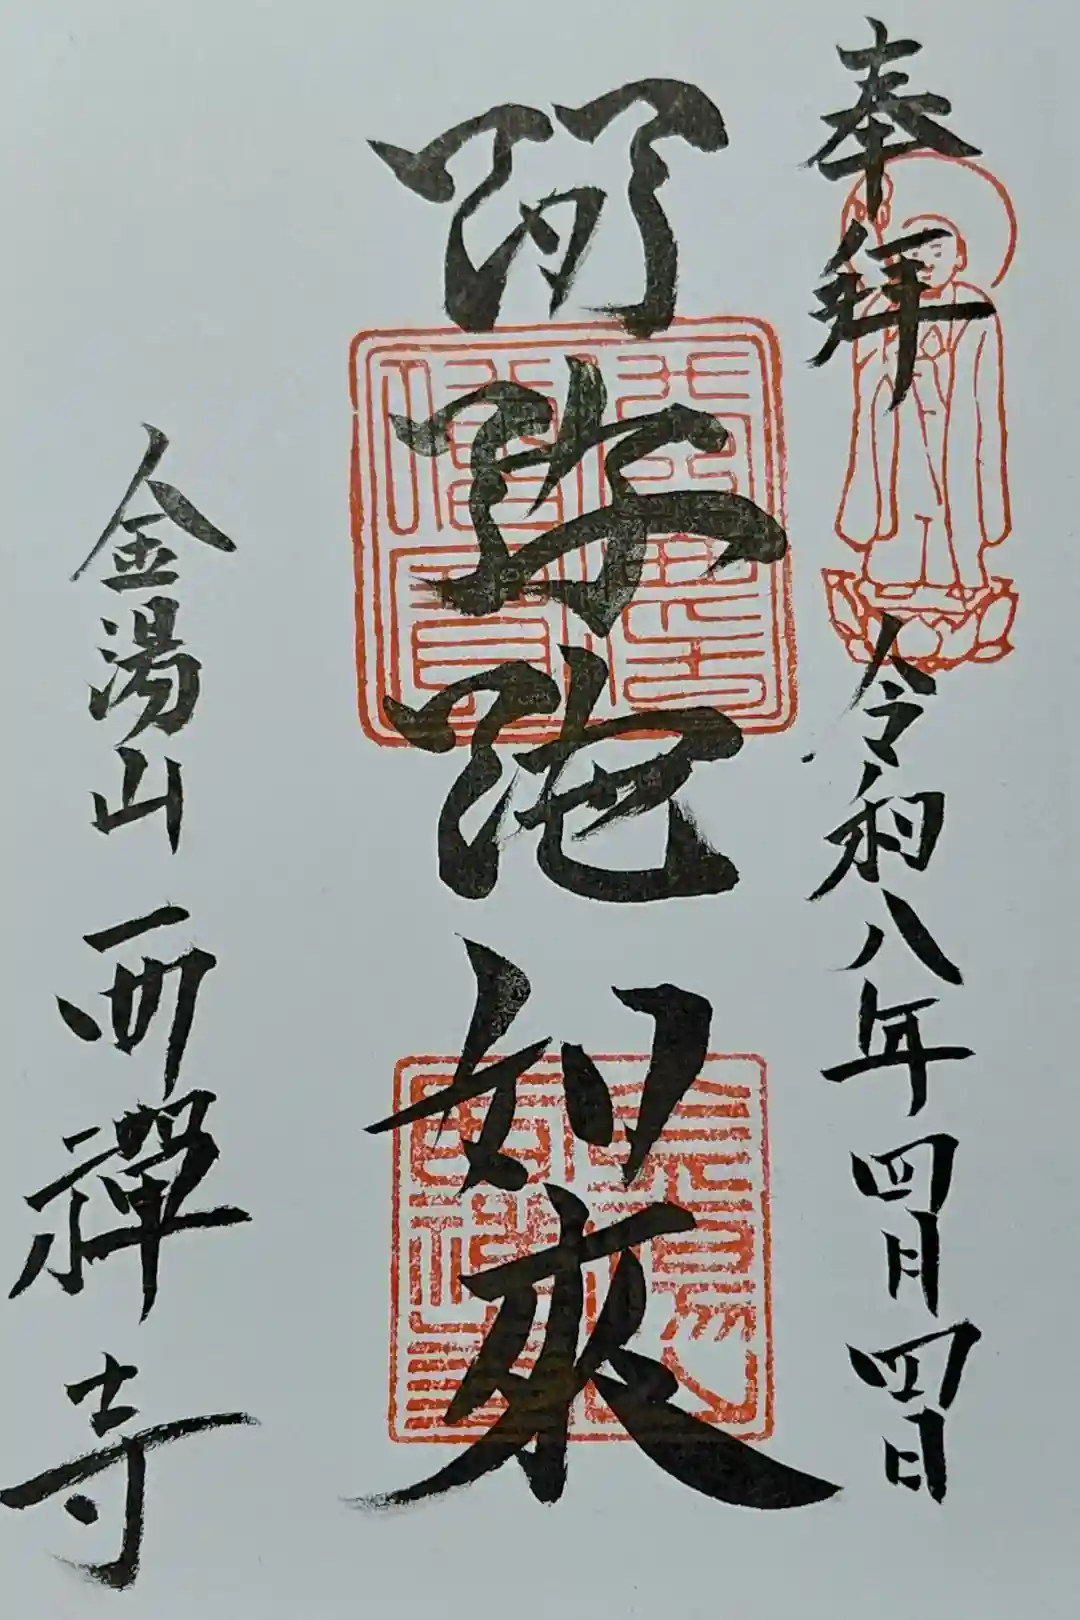 奉拝
令和八年四月四日
阿弥陀如來
金湯山
西禅寺